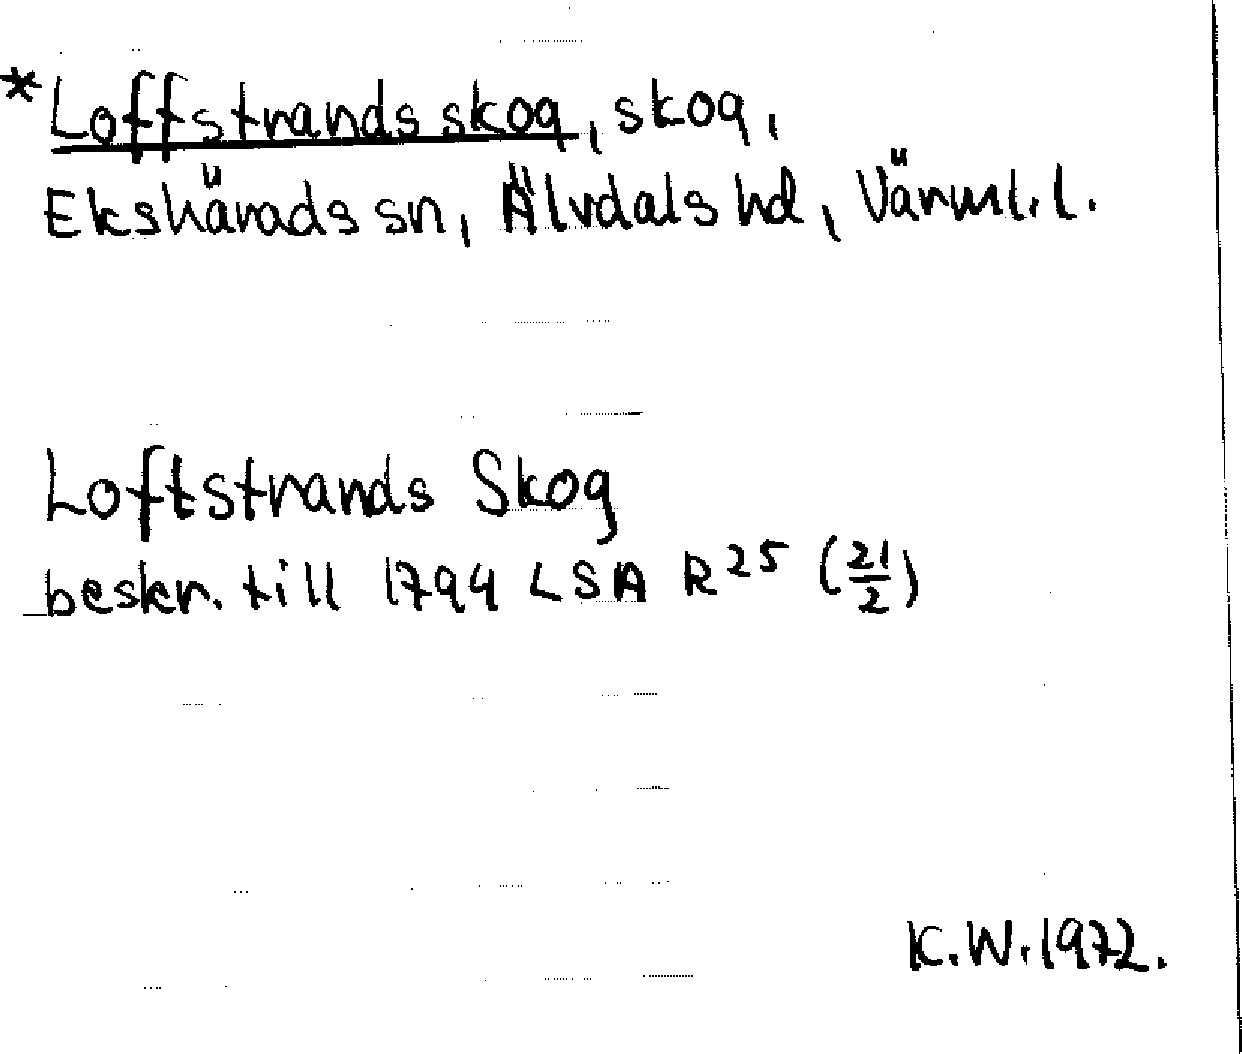 *Loffstrandsskog, skog,
Ekshärads sn, Älvdals hd, Värml. l.
Loftstrands Skog
beskr. till 1794 LSA R25 (21/2)
K.W. 1972.